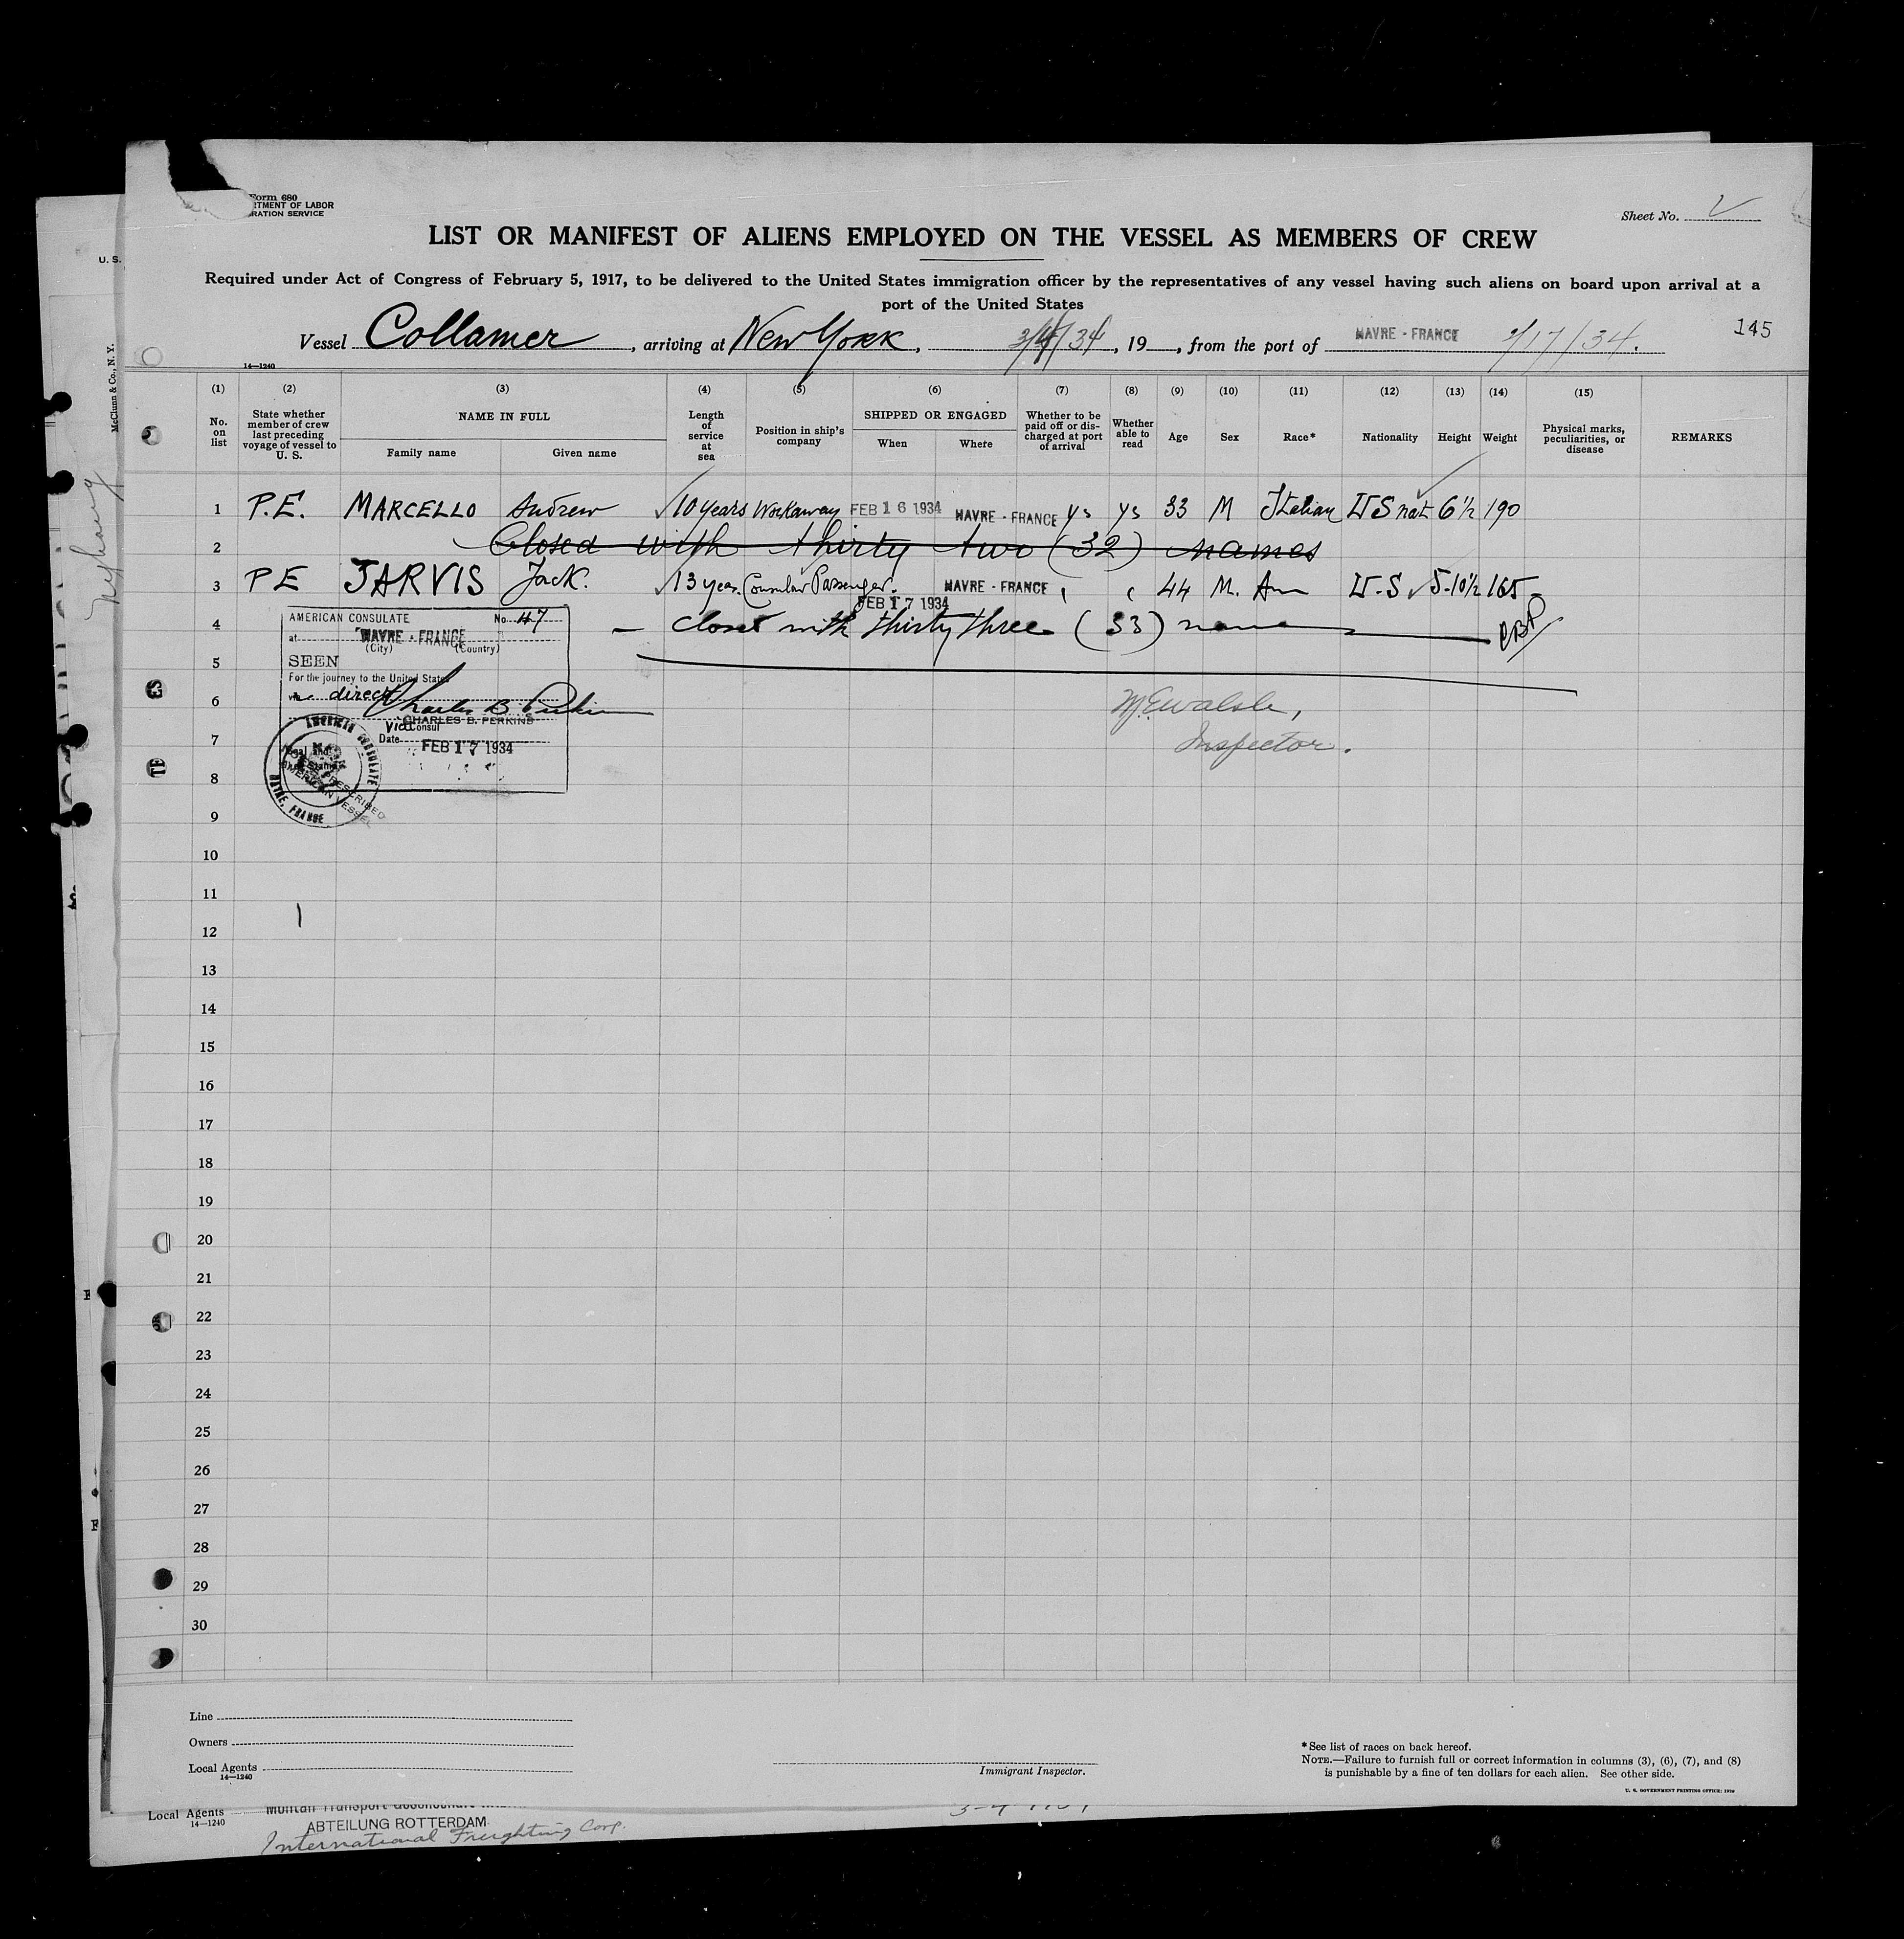 Form 680
RTMENT OF LABOR
RATION SERVICE
Sheet No.
LIST OR MANIFEST OF ALIENS EMPLOYED ON THE VESSEL AS MEMBERS OF CREW
Required under Act of Congress of February 5, 1917, to be delivered to the United States immigration officer by the representatives of any vessel having such aliens on board upon arrival at a
port of the United States
Vessel Collamer, arriving at New York, 34, 19, from the port of HAVRE - FRANCE 2/17/34.
145
14—1240
(1) (2) (3) (4) (5) (6) (7) (8) (9) (10) (11) (12) (13) (14) (15)
No. on list
State whether member of crew last preceding voyage of vessel to U. S.
NAME IN FULL
Family name Given name
Length of service at sea
Position in ship's company
SHIPPED OR ENGAGED
When Where
Whether to be paid off or discharged at port of arrival
Whether able to read
Age
Sex
Race*
Nationality
Height
Weight
Physical marks, peculiarities, or disease
REMARKS
1 P.E. MARCELLO Andrew 10 years Workaway FEB 16 1934 HAVRE - FRANCE ys ys 33 M Italian US nat 6 ½ 190
2 Closed with thirty two (32) names
3 P E JARVIS Jack. 13 year. Consular Passenger. FEB 17 1934 HAVRE - FRANCE 44 M. Am U-S 5-10½ 165
4 closed with thirty three (33) names
AMERICAN CONSULATE No. 47
at HAVRE - FRANCE
(City) (Country)
SEEN
For the journey to the United States
via direct Charles B. Perkins
CHARLES B. PERKINS
Vice Consul
Date FEB 17 1934
AMERICAN CONSULATE
HAVRE, FRANCE
5
6
M.E. Walsh,
7
Inspector.
8
9
10
11
12
13
14
15
16
17
18
19
20
21
22
23
24
25
26
27
28
29
30
Line
Owners
Local Agents
14—1240
Immigrant Inspector.
*See list of races on back hereof.
NOTE.—Failure to furnish full or correct information in columns (3), (6), (7), and (8)
is punishable by a fine of ten dollars for each alien. See other side.
Local Agents
14—1240
ABTEILUNG ROTTERDAM
International Freighting Corp.
U. S.
McClunn & Co., N. Y.